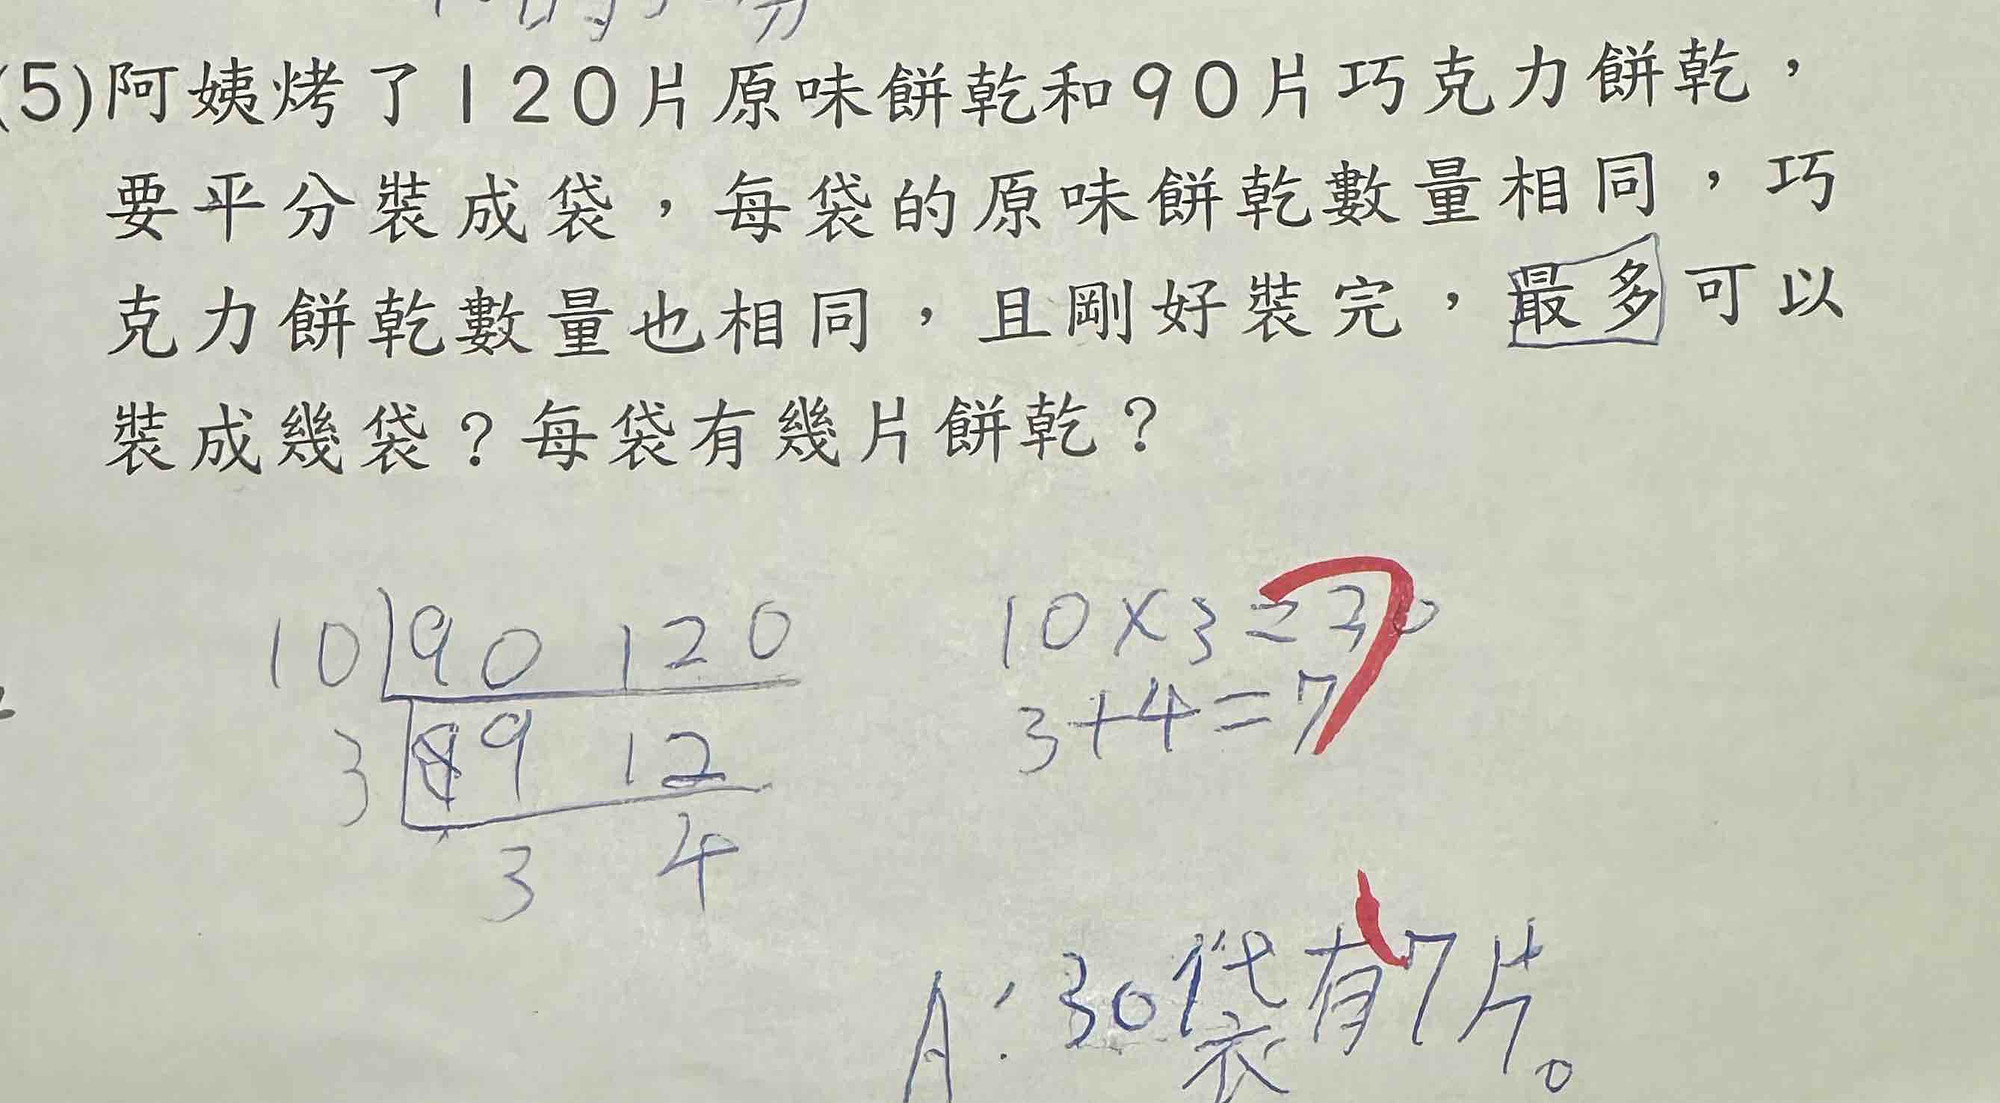 (5)阿姨烤了120片原味餅乾和90片巧克力餅乾，
要平分裝成袋，每袋的原味餅乾數量相同，巧
克力餅乾數量也相同，且剛好裝完，最多可以
裝成幾袋？每袋有幾片餅乾？
10 90 120
3 9 12
3 4
10×3=30
3+4=7
A:30袋有7片。